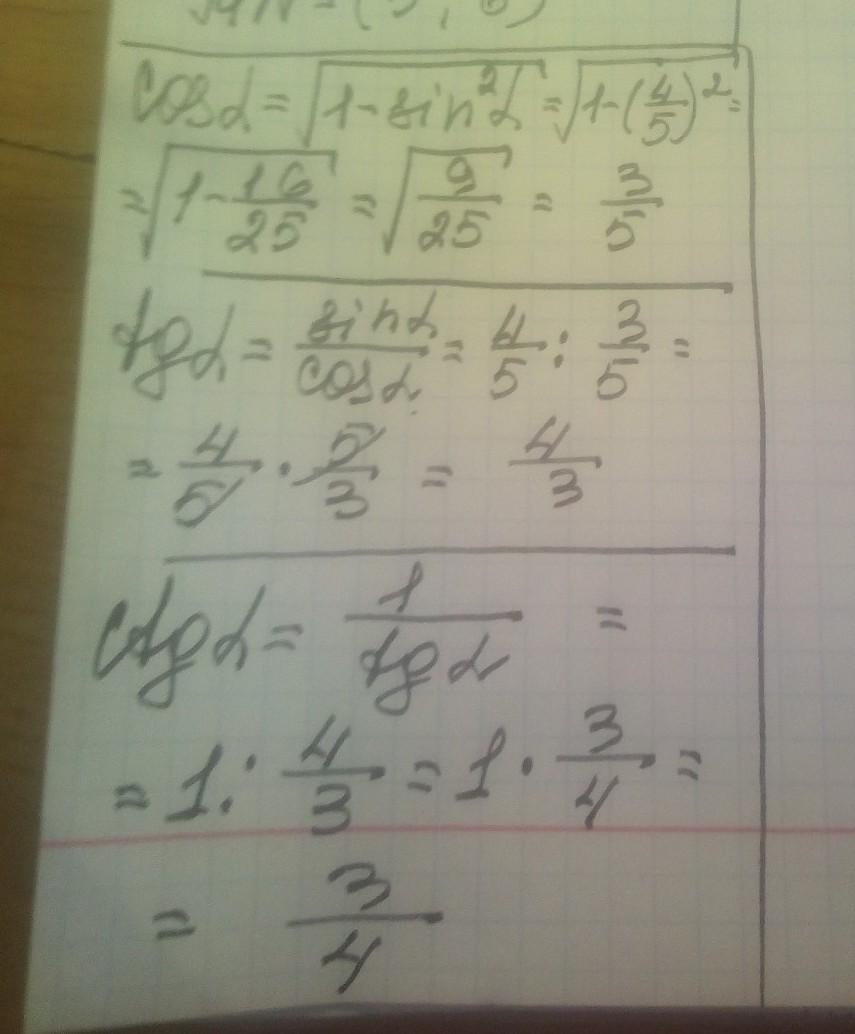 cos α = √(1 - sin² α) = √(1 - (4/5)²) =
= √(1 - 16/25) = √(9/25) = 3/5
tg α = sin α / cos α = 4/5 : 3/5 =
= 4/5 · 5/3 = 4/3
ctg α = 1 / tg α =
= 1 : 4/3 = 1 · 3/4 =
= 3/4